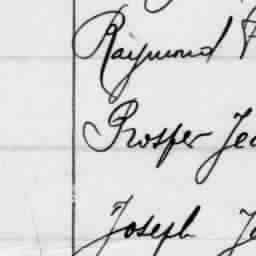 Raymond
Prosper Jea
Joseph